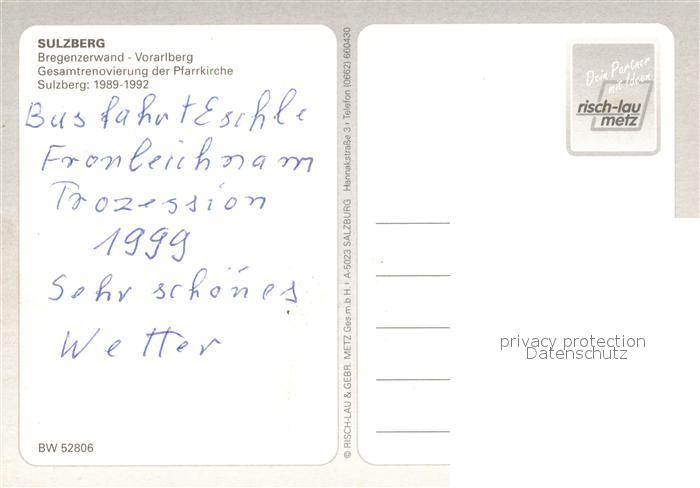 SULZBERG
Bregenzerwand - Vorarlberg
Gesamtrenovierung der Pfarrkirche
Sulzberg: 1989-1992
Busfahrt Eschle
Fronleichnam
Prozession
1999
Sehr schönes
Wetter
BW 52806
© RISCH-LAU & GEBR. METZ Ges.m.b.H. ı A-5023 SALZBURG Hannakstraße 3 ı Telefon (0662) 660430
Dein Partner
mit Ideen
risch-lau
metz
privacy protection
Datenschutz